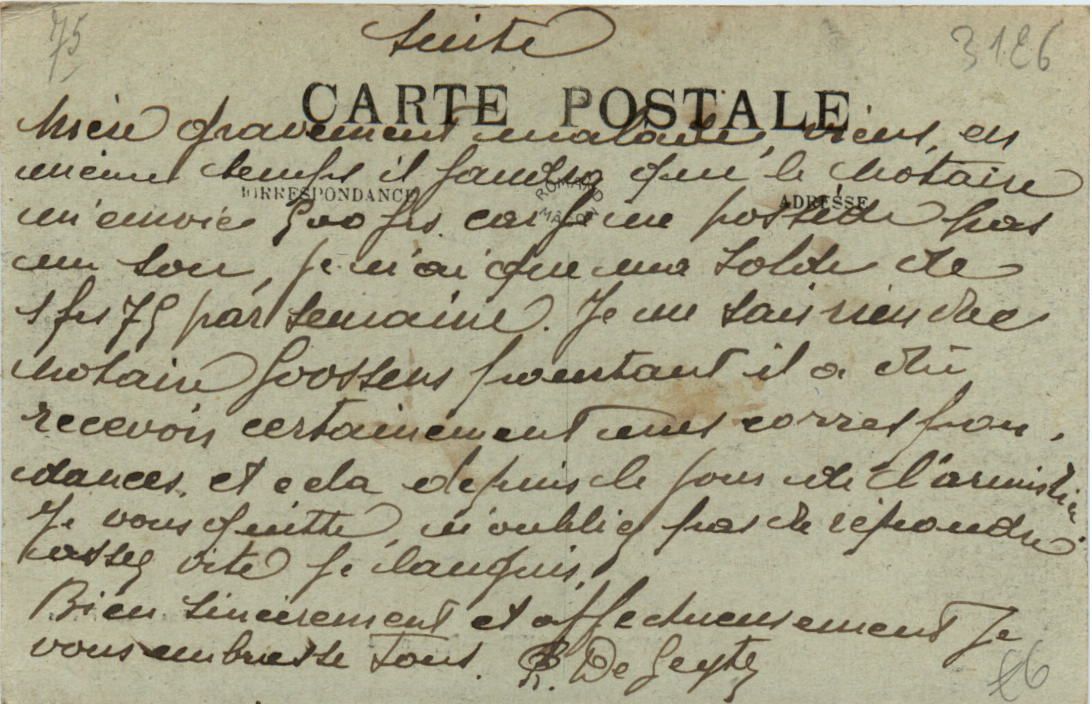 75
Suite
31E6
CARTE POSTALE
Mère gravement malade, viens, en
même temps il faudra que le notaire
CORRESPONDANCE
ROMANO
MÂCON
ADRESSE
m'envoie 500 frs car je ne possède pas
un sou, je n'ai que ma solde de
1 frs 75 par semaine. Je ne sais rien du
notaire Goossens pourtant il a dû
recevoir certainement mes correspon.
dances, et cela depuis le jour de l'armistice
Je vous quitte, n'oubliez pas de répondre
assez vite je languis.
Bien sincèrement et affectueusement Je
vous embrasse tous. R. De Geyter
€6